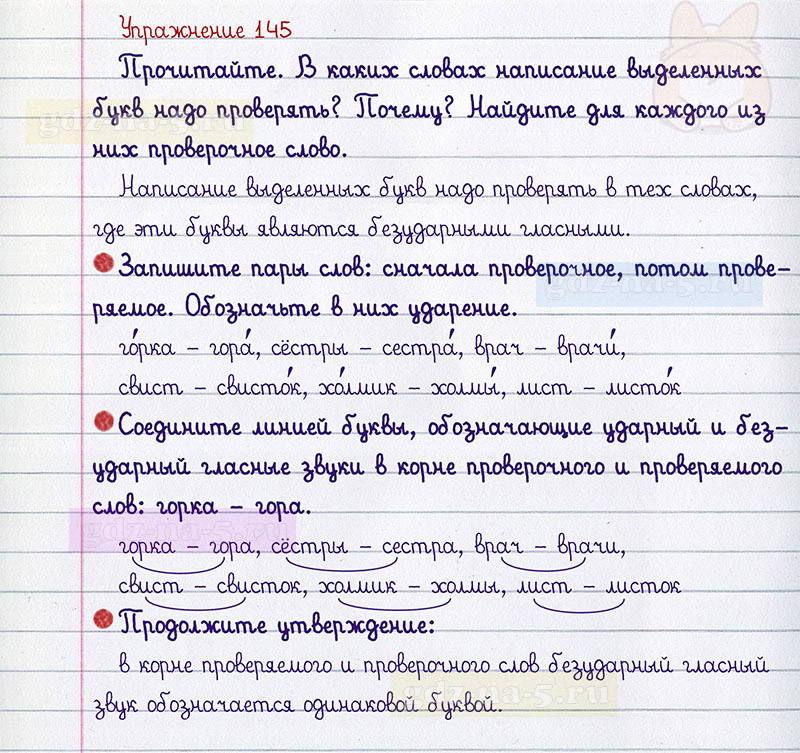 Упражнение 145
Прочитайте. В каких словах написание выделенных
букв надо проверять? Почему? Найдите для каждого из
них проверочное слово.
Написание выделенных букв надо проверять в тех словах,
где эти буквы являются безударными гласными.
Запишите пары слов: сначала проверочное, потом прове-
ряемое. Обозначьте в них ударение.
го́рка – гора́, сёстры – сестра́, врач – врачи́,
свист – свисто́к, хо́лмик – холмы́, лист – листо́к
Соедините линией буквы, обозначающие ударный и без-
ударный гласные звуки в корне проверочного и проверяемого
слов: горка – гора.
горка – гора, сёстры – сестра, врач – врачи,
свист – свисток, холмик – холмы, лист – листок
Продолжите утверждение:
в корне проверяемого и проверочного слов безударный гласный
звук обозначается одинаковой буквой.
gdz-na-5.ru
gdz-na-5.ru
gdz-na-5.ru
gdz-na-5.ru